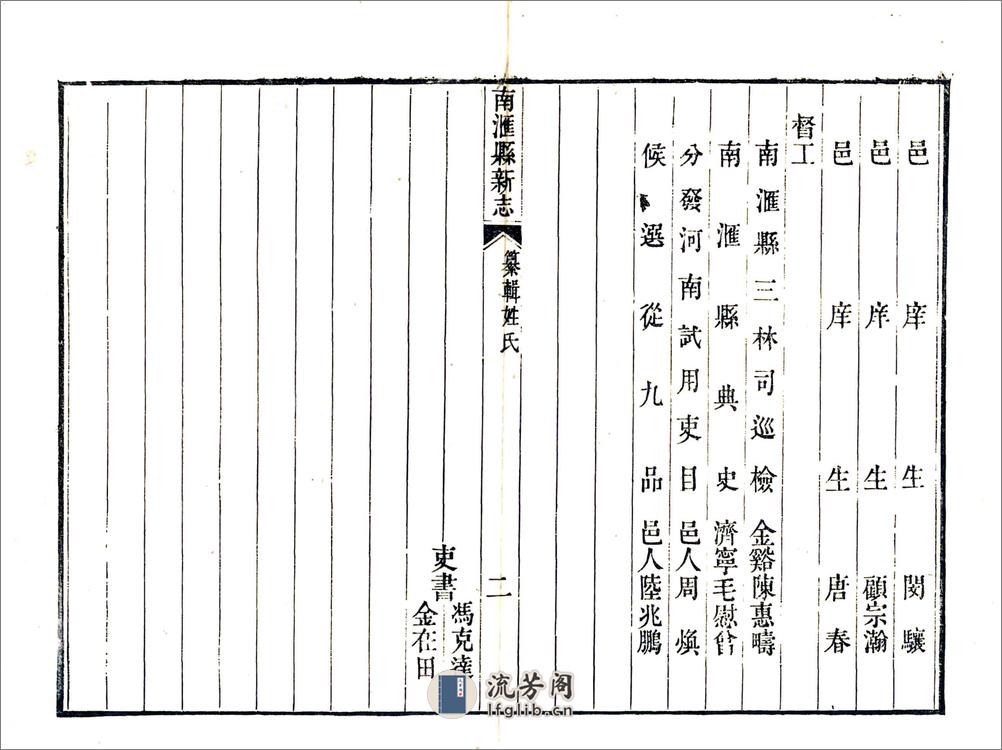 邑庠生閔驤
邑庠生顧宗瀚
邑庠生唐春
督工
南滙縣三林司巡檢金谿陳惠疇
南滙縣典史濟寧毛慰曾
分發河南試用吏目邑人周煥
候選從九品邑人陸兆鵬
南滙縣新志
纂輯姓氏
二
吏書
馮克達
金在田
流芳阁
lfglib.cn